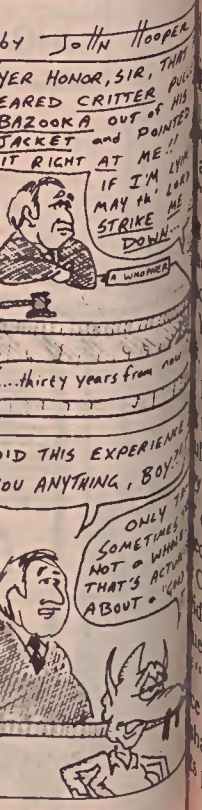 by JOHN HOOPER
YER HONOR, SIR, THAT
EARED CRITTER PULLED
BAZOOKA OUT OF HIS
JACKET and POINTED
IT RIGHT AT ME!!
IF I'M LYIN'
MAY th' LORD
STRIKE ME
DOWN...
A WHOPNER
....thirty years from now
DID THIS EXPERIENCE
YOU ANYTHING, BOY?
ONLY
SOMETIMES
NOT A
THAT'S
ABOUT a